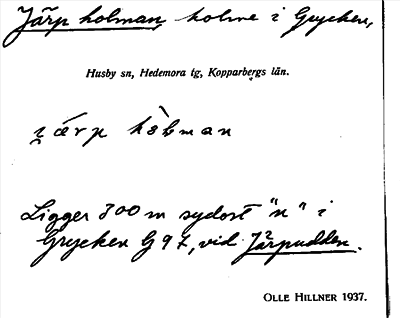 Järp holman, holme i Grycken,
Husby sn, Hedemora tg, Kopparbergs län.
järp hòlman
Ligger 300 m sydost "n" i
Grycken G 97, vid Järpudden.
OLLE HILLNER 1937.